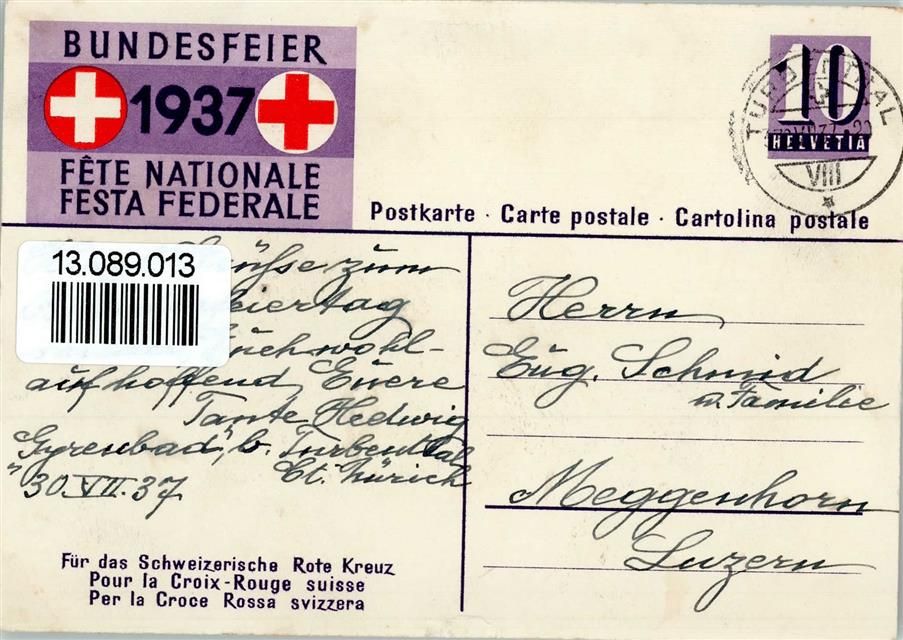 BUNDESFEIER
1937
FÊTE NATIONALE
FESTA FEDERALE
10
HELVETIA
TURBENTHAL
VIII
Postkarte · Carte postale · Cartolina postale
13.089.013
zum
auf hoffend, Euere
Tante Hedwig
"Gyrenbad", b. Turbenthal
Ct. Zürich
30.VII.37
Herrn
Eug. Schmid
u. Familie
Meggenhorn
Luzern
Für das Schweizerische Rote Kreuz
Pour la Croix-Rouge suisse
Per la Croce Rossa svizzera